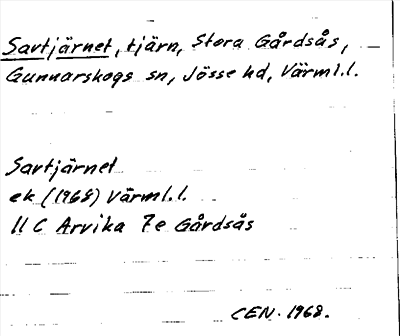 Savtjärnet, tjärn, Stora Gårdsås,
Gunnarskogs sn, Jösse hd, Värml.l.
Savtjärnet
ek (1968) Värml.l.
11 C Arvika 7e Gårdsås
CEN. 1968.